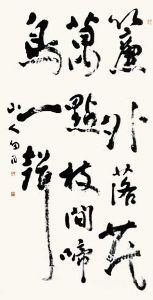 簾外落花
萬點枝間啼
鳥一聲